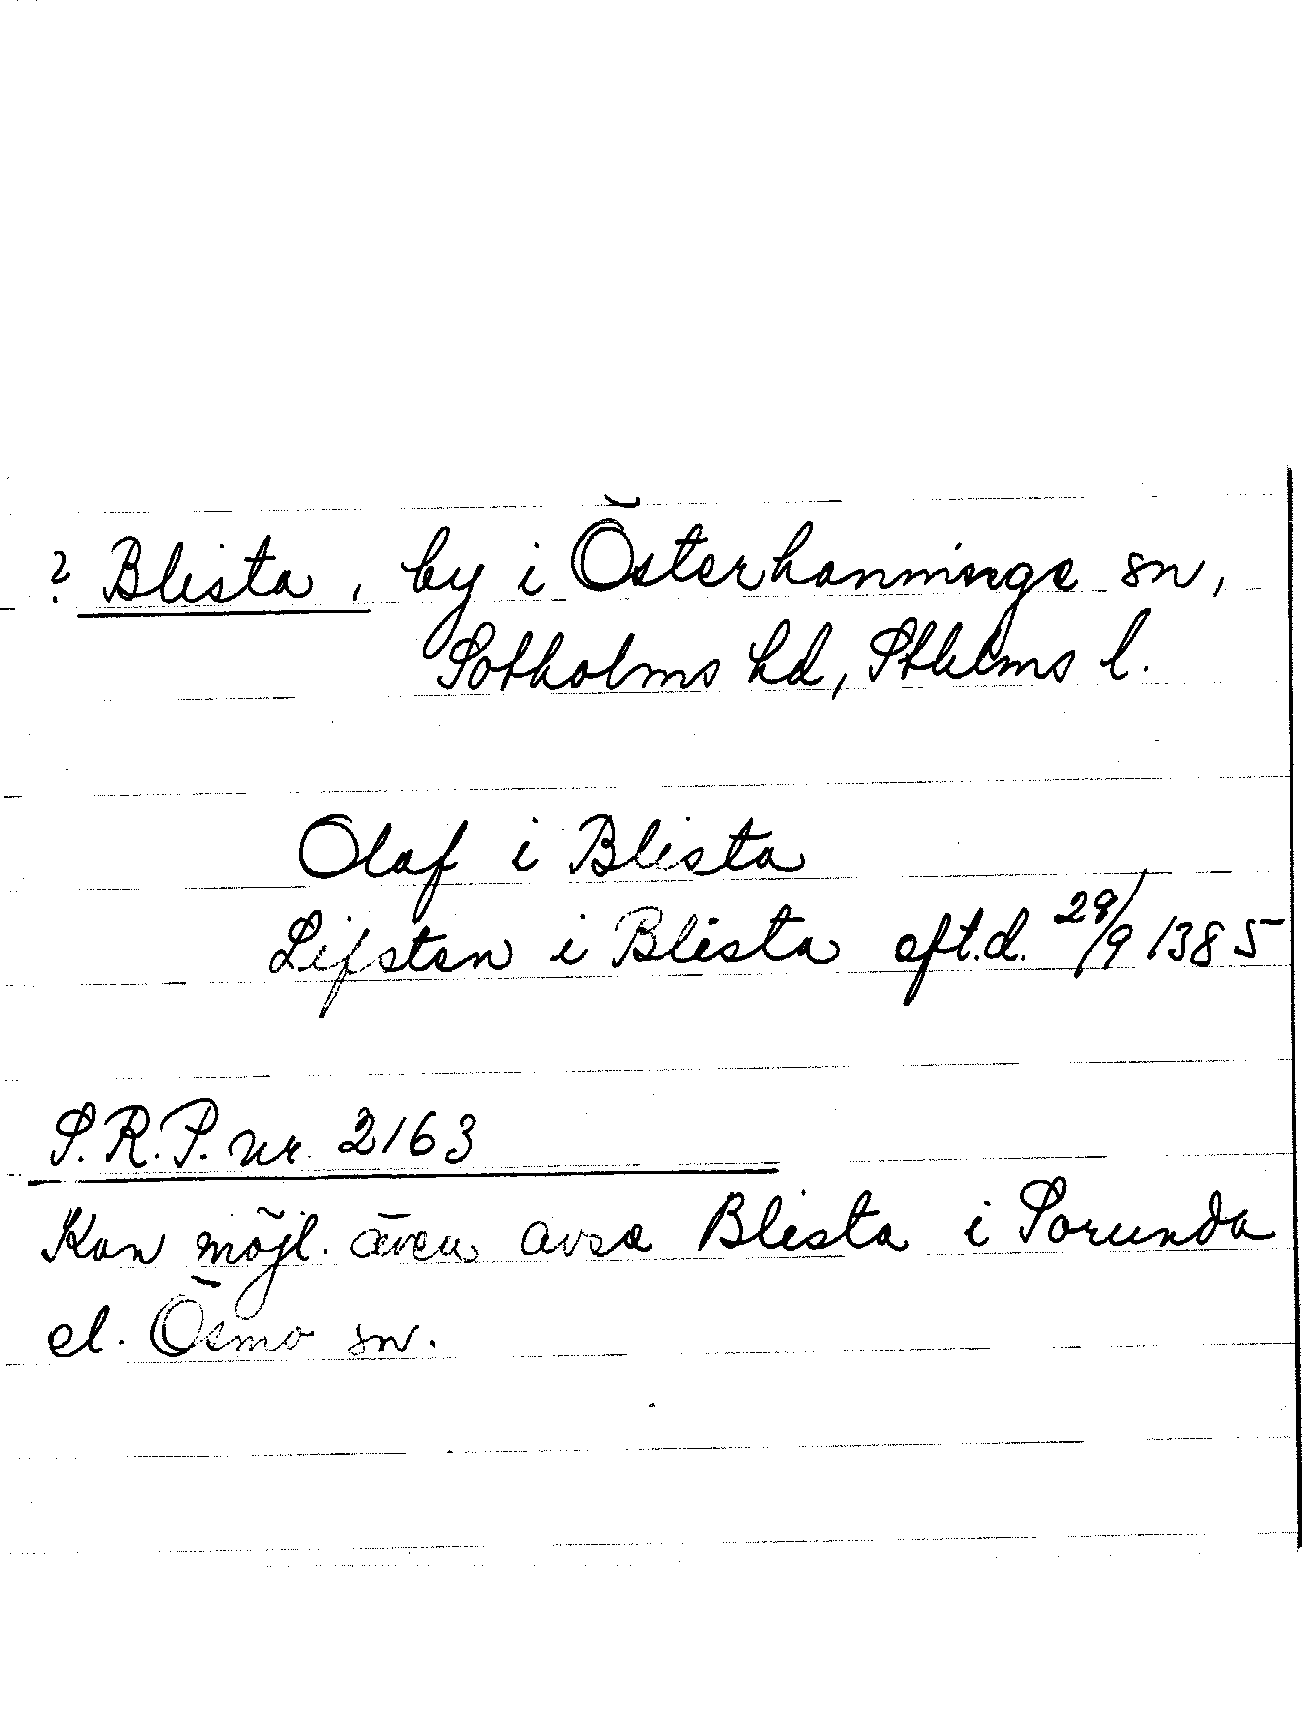 ? Blista, by i Österhanninge sn,
Sotholms hd, Sthlms l.
Olaf i Blista
Lifsten i Blista eft.d. 29/9 1385
S.R.P. nr 2163
Kan möjl. även avse Blista i Sorunda
el. Ösmo sn.